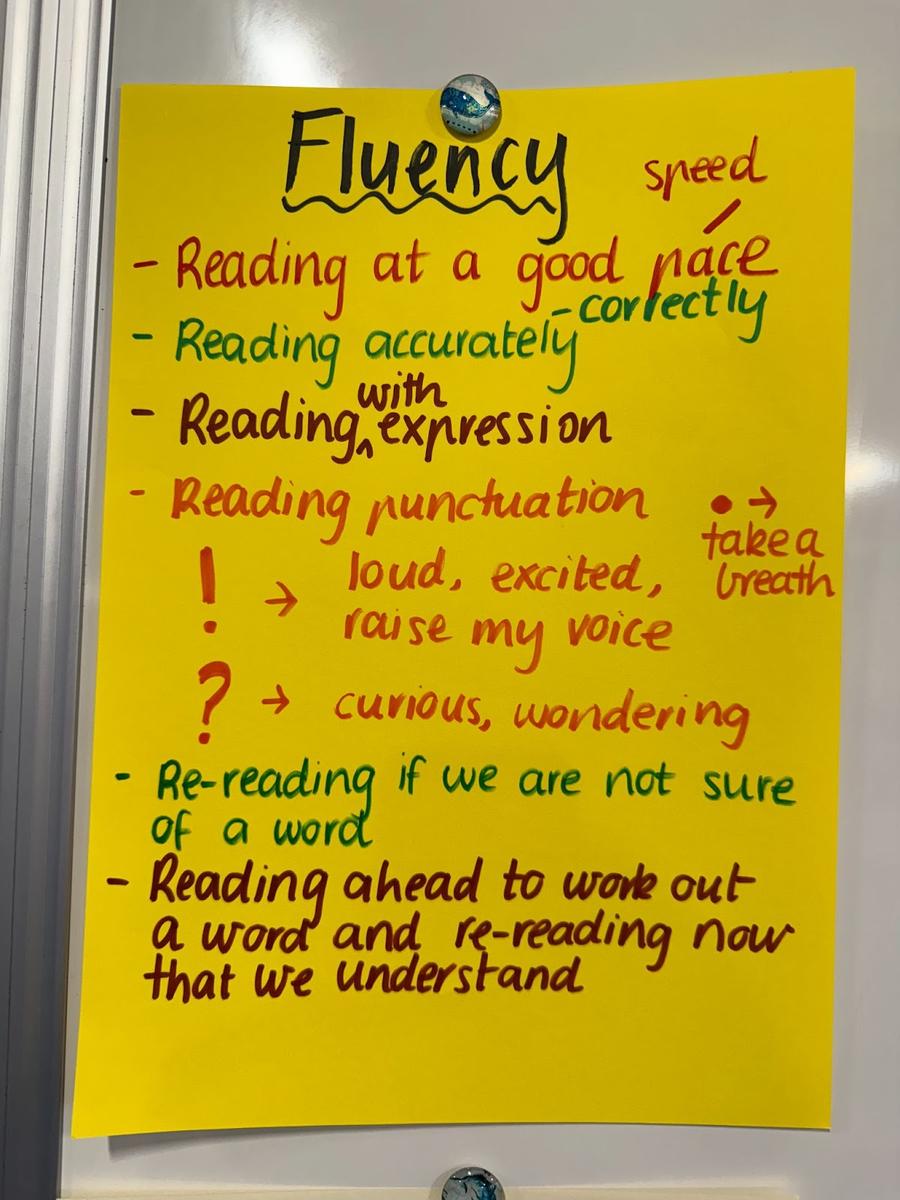 Fluency
speed
- Reading at a good pace
- Reading accurately - correctly
with
- Reading ^ expression
- Reading punctuation
• →
take a
breath
! → loud, excited,
raise my voice
? → curious, wondering
- Re-reading if we are not sure
of a word
- Reading ahead to work out
a word and re-reading now
that we understand